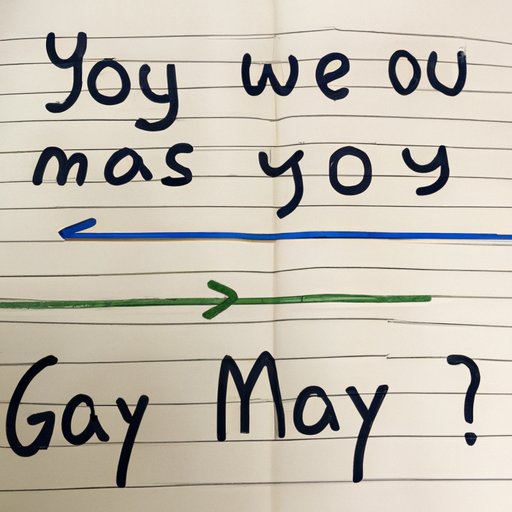 Yoy we ou
mas yoy
Gay May ?